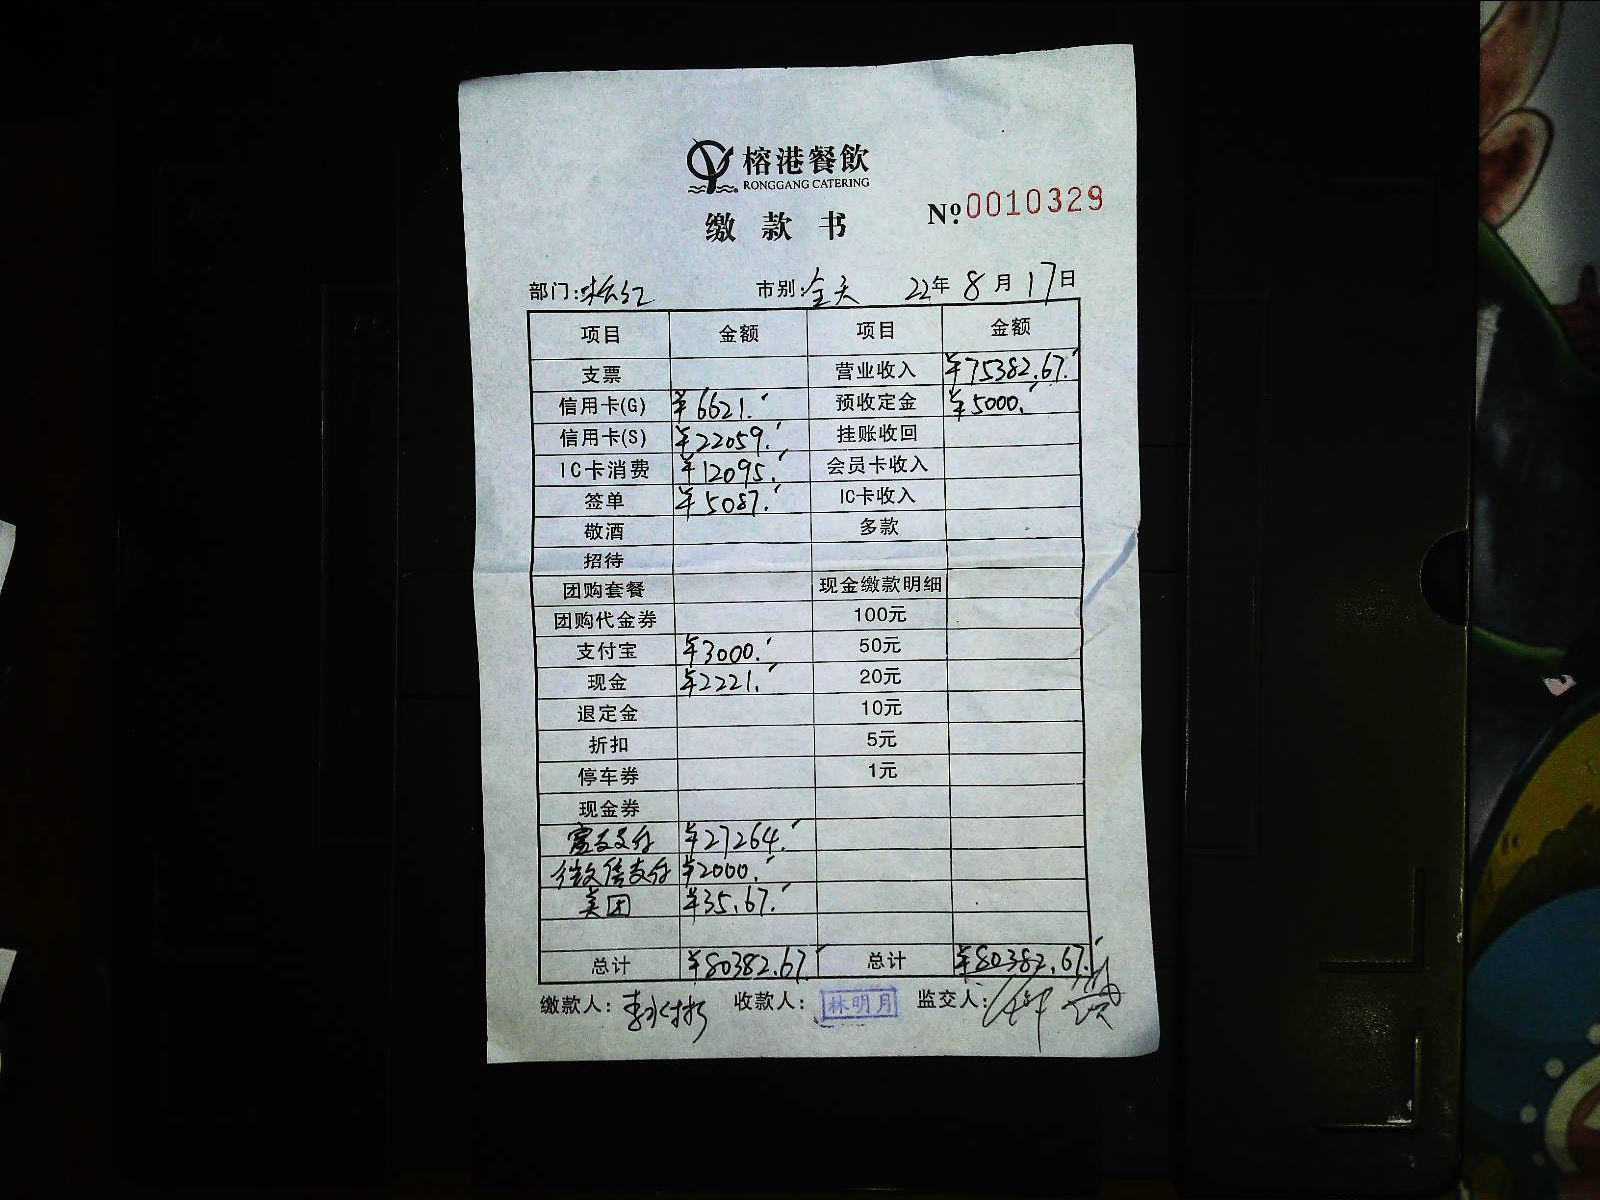 榕港餐飲
RONGGANG CATERING
缴款书
№ 0010329
部门: 市别: 全天 22年 8月 17日
项目 金额 项目 金额
支票 营业收入 ¥75382.67
信用卡(G) ¥6621. 预收定金 ¥5000.
信用卡(S) ¥22059. 挂账收回
IC卡消费 ¥12095. 会员卡收入
签单 ¥5087. IC卡收入
敬酒 多款
招待
团购套餐 现金缴款明细
团购代金券 100元
支付宝 ¥3000. 50元
现金 ¥2221. 20元
退定金 10元
折扣 5元
停车券 1元
现金券
支付 ¥27264.
微信支付 ¥2000.
美团 ¥35.67.
总计 ¥80382.67 总计 ¥80382.67.
缴款人: 收款人: 林明月 监交人: